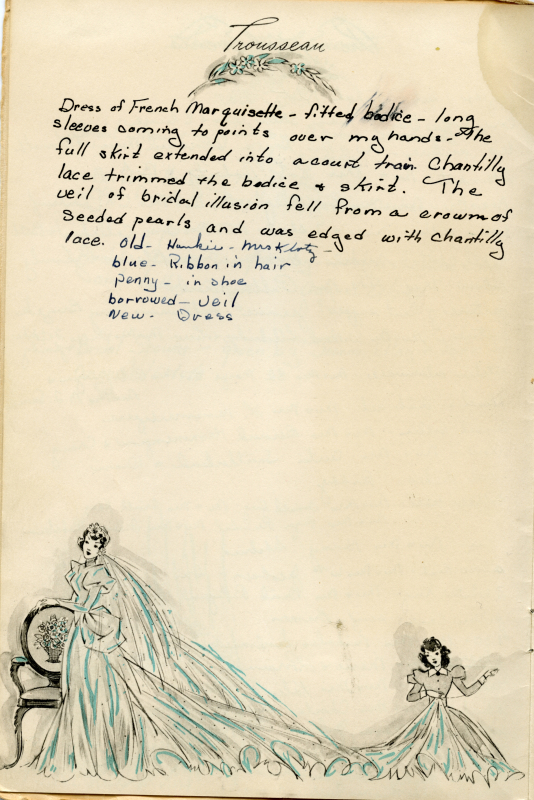 Trousseau
Dress of French Marquisette - fitted bodice - long
sleeves coming to points over my hands - The
full skirt extended into a court train Chantilly
lace trimmed the bodice & skirt. The
veil of bridal illusion fell from a crown of
seeded pearls and was edged with Chantilly
lace. Old - Hankie - Mrs Klotz -
blue - Ribbon in hair
penny - in shoe
borrowed - veil
New - Dress